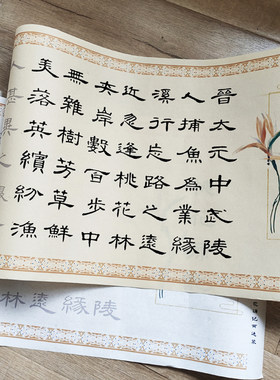 晉太元中武陵
人捕魚為業緣
溪行忘路之遠
近忽逢桃花林
夾岸數百步中
無雜樹芳草鮮
美落英繽紛漁
人甚異之
林遠緣陵